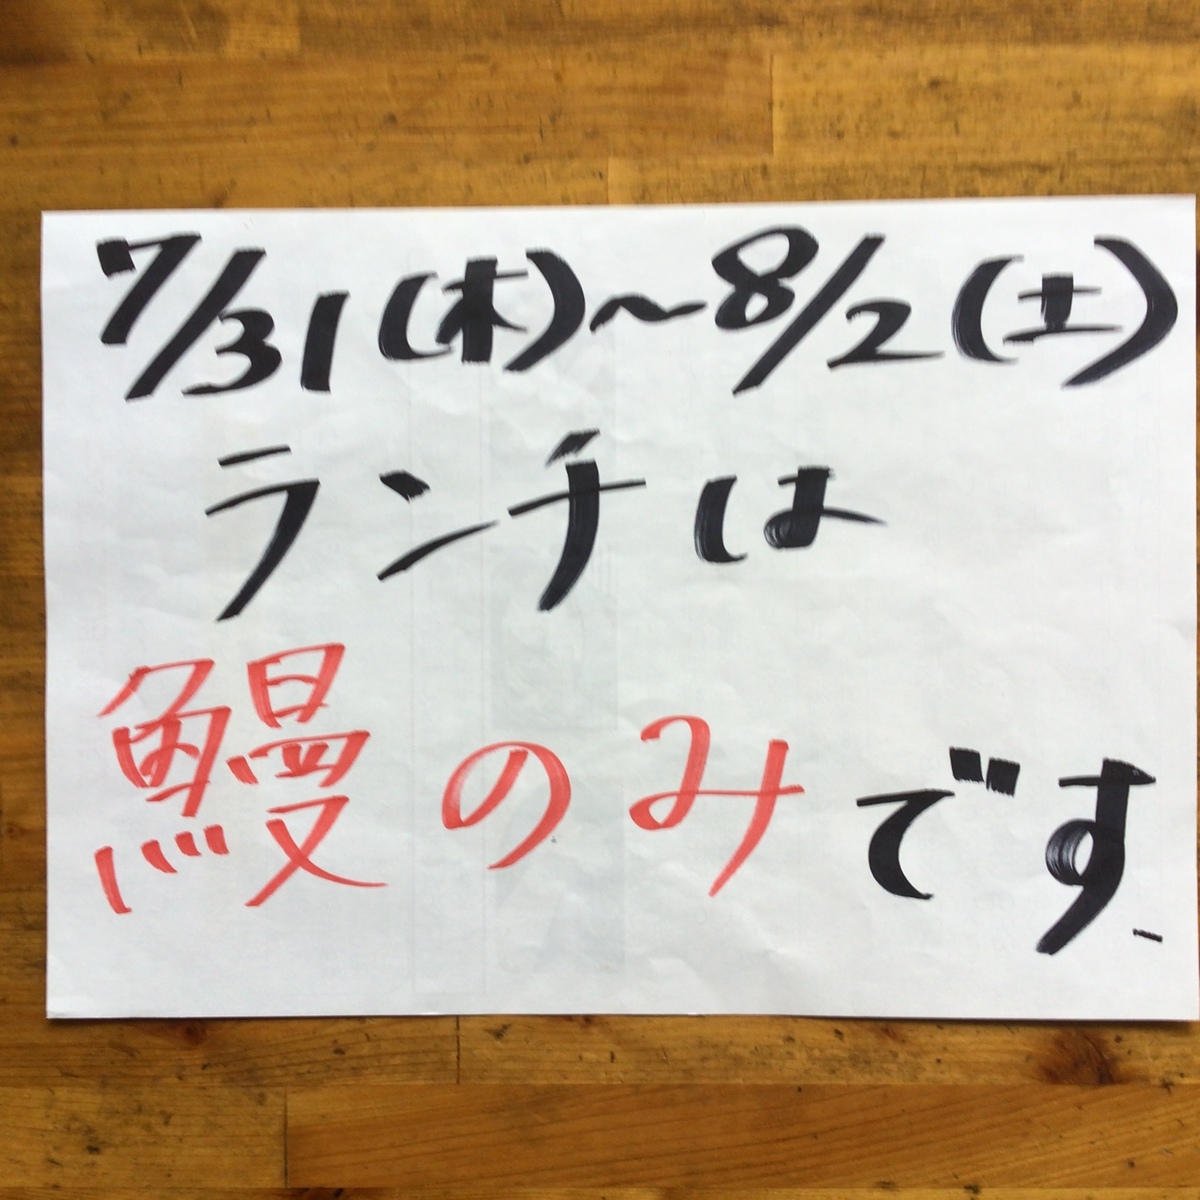 7/31(木)~8/2(土)
ランチは
鰻のみです